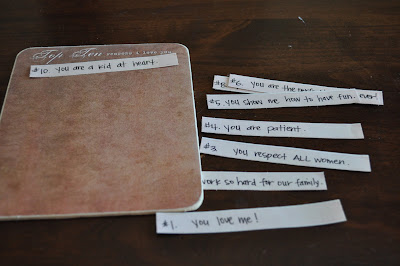 Top Ten reasons I love you
#10. you are a kid at heart.
#6. you are the
#8.
#5 you show me how to have fun. ever!
#4. you are patient.
#3. you respect ALL women.
work so hard for our family.
#1. you love me!